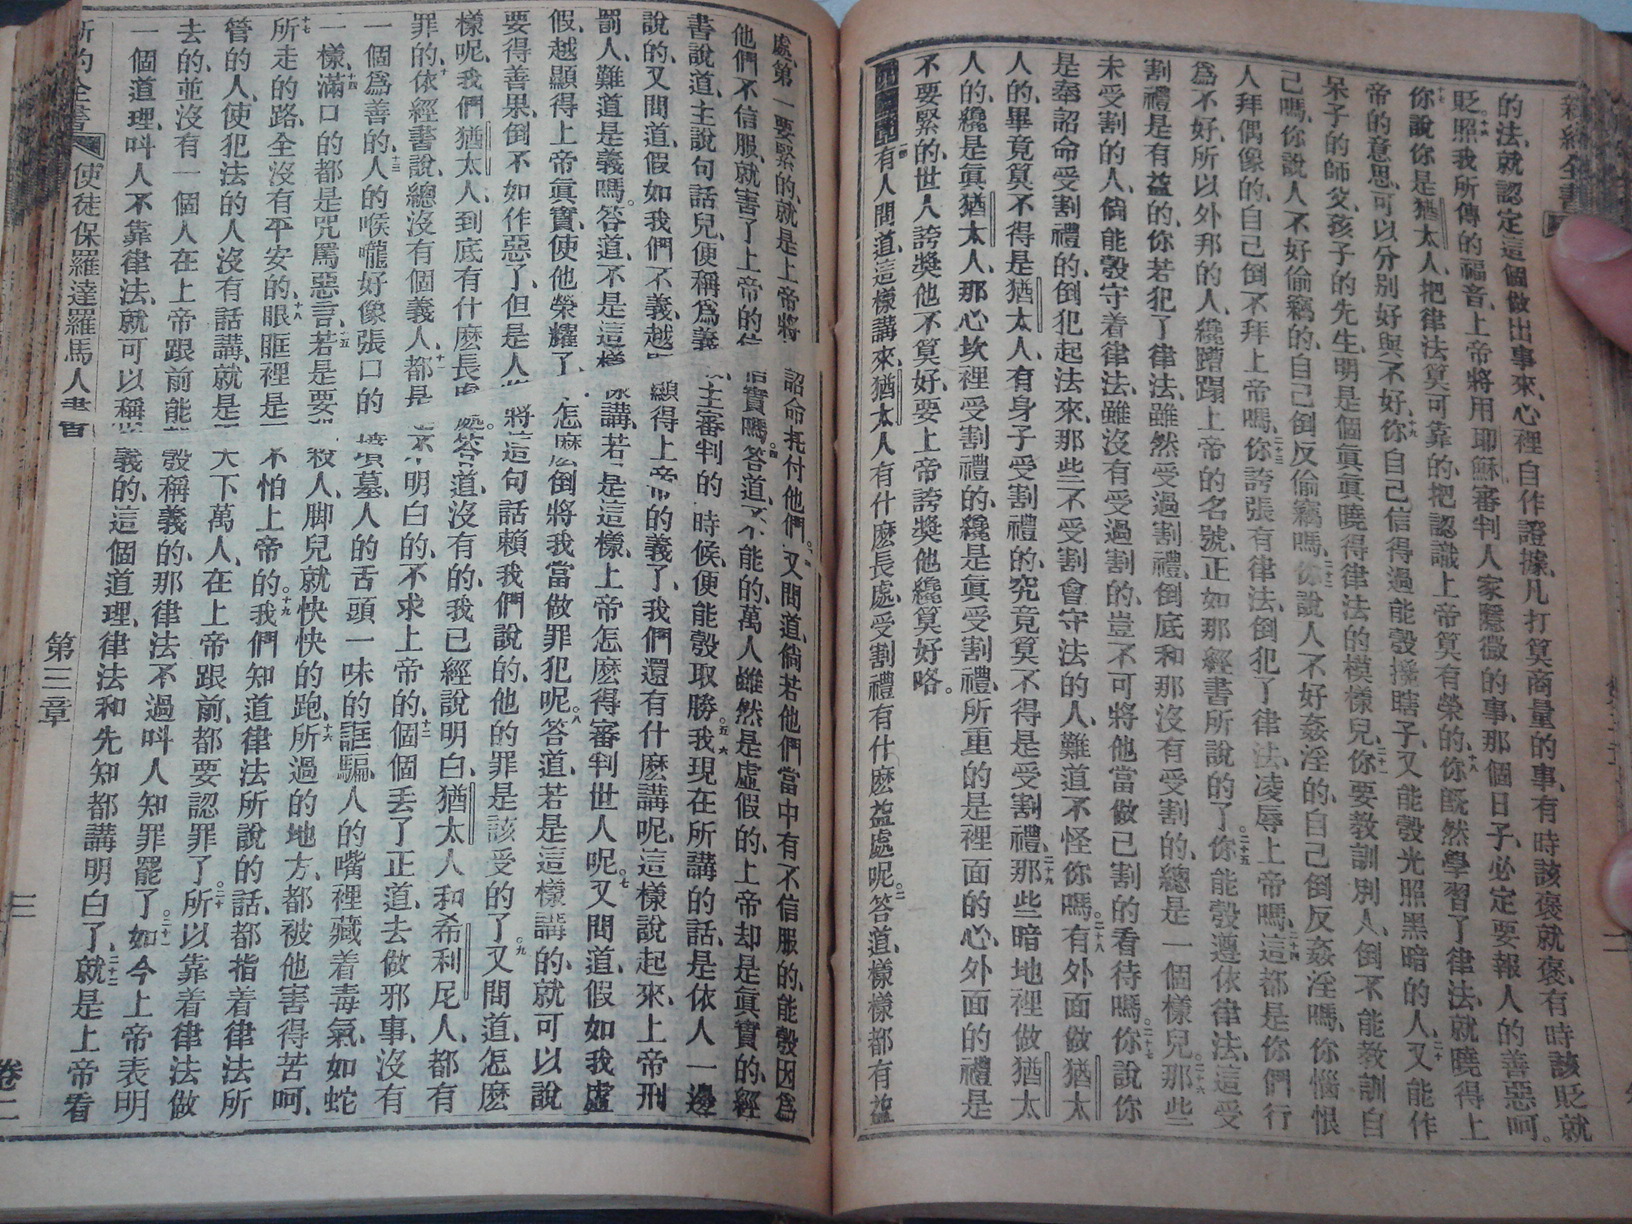 新約全書
的法、就認定這個做出事來、心裡自作證據、凡打算商量的事、有時該褒就褒、有時該貶就
貶、十六照我所傳的福音、上帝將用耶穌審判人家隱微的事、那個日子、必定要報人的善惡呵。
十七你說你是猶太人、把律法算可靠的、把認識上帝算有榮的、十八你旣然學習了律法、就曉得上
帝的意思、可以分別好與不好、十九你自己信得過能彀攙瞎子、又能彀光照黑暗的人、二十又能作
呆子的師父、孩子的先生、明是個眞眞曉得律法的模樣兒、二十一你要教訓別人、倒不能教訓自
己嗎、你說人不好偷竊的、自己倒反偷竊嗎、二十二你說人不好姦淫的、自己倒反姦淫嗎、你惱恨
人拜偶像的、自己倒不拜上帝嗎、二十三你誇張有律法、倒犯了律法、凌辱上帝嗎、二十四這都是你們行
爲不好、所以外邦的人、纔蹧蹋上帝的名號、正如那經書所說的了。二十五你能彀遵依律法、這受
割禮是有益的、你若犯了律法、雖然受過割禮、倒底和那沒有受割的、總是一個樣兒。二十六那些
未受割的人、倘能彀守着律法、雖沒有受過割的、豈不可將他當做已割的看待嗎。二十七你說你
是奉詔命受割禮的、倒犯起法來、那些不受割會守法的人、難道不怪你嗎。二十八有外面做猶太
人的、畢竟算不得是猶太人、有身子受割禮的、究竟算不得是受割禮、二十九那些暗地裡做猶太
人的、纔是眞猶太人、那心坎裡受割禮的、纔是眞受割禮、所重的是裡面的心、外面的禮是
不要緊的、世人誇獎他不算好、要上帝誇獎他纔算好咯。
一有人問道、這樣講來、猶太人有什麽長處、受割禮有什麽益處呢。二答道、樣樣都有益
處、第一要緊的、就是上帝將詔命托付他們。三又問道、倘若他們當中有不信服的、能彀因爲
他們不信服、就害了上帝的信實嗎。四答道、不能的、萬人雖然是虛假的、上帝却是眞實的、經
書說道、主說句話兒、便稱爲義、主審判的時候、便能彀取勝。五六我現在所講的話、是依人一邊
說的、又問道、假如我們不義、越顯得上帝的義了、我們還有什麽講呢、這樣說起來、上帝刑
罰人、難道是義嗎。答道、不是這樣講、若是這樣、上帝怎麽得審判世人呢。七又問道、假如我虛
假、越顯得上帝眞實、使他榮耀了、怎麽倒將我當做罪犯呢。八答道、若是這樣講的、就可以說
要得善果、倒不如作惡了、但是人將這句話賴我們說的、他的罪是該受的了。九又問道、怎麽
樣呢、我們猶太人、到底有什麽長處。答道、沒有的、我已經說明白、猶太人和希利尼人、都有
罪的、十依經書說、總沒有個義人、十一都是不明白的、不求上帝的、十二個個丟了正道、去做邪事、沒有
一個爲善的、十三人的喉嚨好像張口的墳墓、人的舌頭一味的誆騙、人的嘴裡藏着毒氣、如蛇
一樣、十四滿口的都是咒罵惡言、十五若是要殺人、脚兒就快快的跑、十六所過的地方、都被他害得苦呵、
十七所走的路、全沒有平安的、十八眼眶裡是不怕上帝的。十九我們知道律法所說的話、都指着律法所
管的人、使犯法的人沒有話講、就是天下萬人、在上帝跟前、都要認罪了。二十所以靠着律法做
去的、並沒有一個人在上帝跟前能彀稱義的、那律法不過叫人知罪罷了。二十一如今上帝表明
一個道理、叫人不靠律法、就可以稱義的、這個道理、律法和先知都講明白了、二十二就是上帝看
新約全書 使徒保羅達羅馬人書 第三章 三 卷二